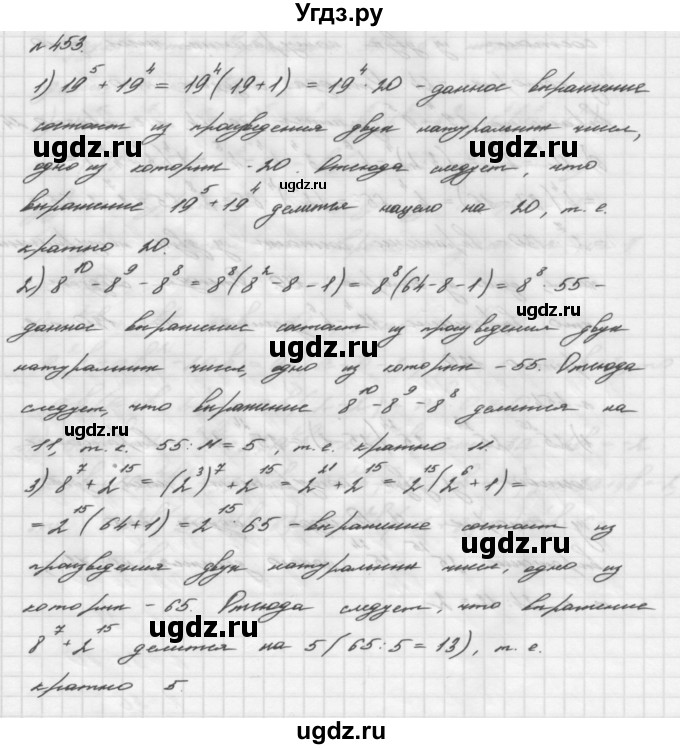 Угdз.ру
№ 453.
1) 19⁵ + 19⁴ = 19⁴(19+1) = 19⁴ · 20 - данное выражение
состоит из произведения двух натуральных чисел,
одно из которых - 20. Отсюда следует, что
выражение 19⁵ + 19⁴ делится нацело на 20, т. е.
кратно 20.
2) 8¹⁰ - 8⁹ - 8⁸ = 8⁸(8² - 8 - 1) = 8⁸(64-8-1) = 8⁸ · 55 -
данное выражение состоит из произведения двух
натуральных чисел, одно из которых - 55. Отсюда
следует, что выражение 8¹⁰ - 8⁹ - 8⁸ делится на
11, т. е. 55 : 11 = 5, т. е. кратно 11.
3) 8⁷ + 2¹⁵ = (2³)⁷ + 2¹⁵ = 2²¹ + 2¹⁵ = 2¹⁵(2⁶ + 1) =
= 2¹⁵(64+1) = 2¹⁵ · 65 - выражение состоит из
произведения двух натуральных чисел, одно из
которых - 65. Отсюда следует, что выражение
8⁷ + 2¹⁵ делится на 5 (65 : 5 = 13), т. е.
кратно 5.
ugdz.ru
ugdz.ru
ugdz.ru
ugdz.ru
ugdz.ru
ugdz.ru
ugdz.ru
ugdz.ru
ugdz.ru
Угдз.ру